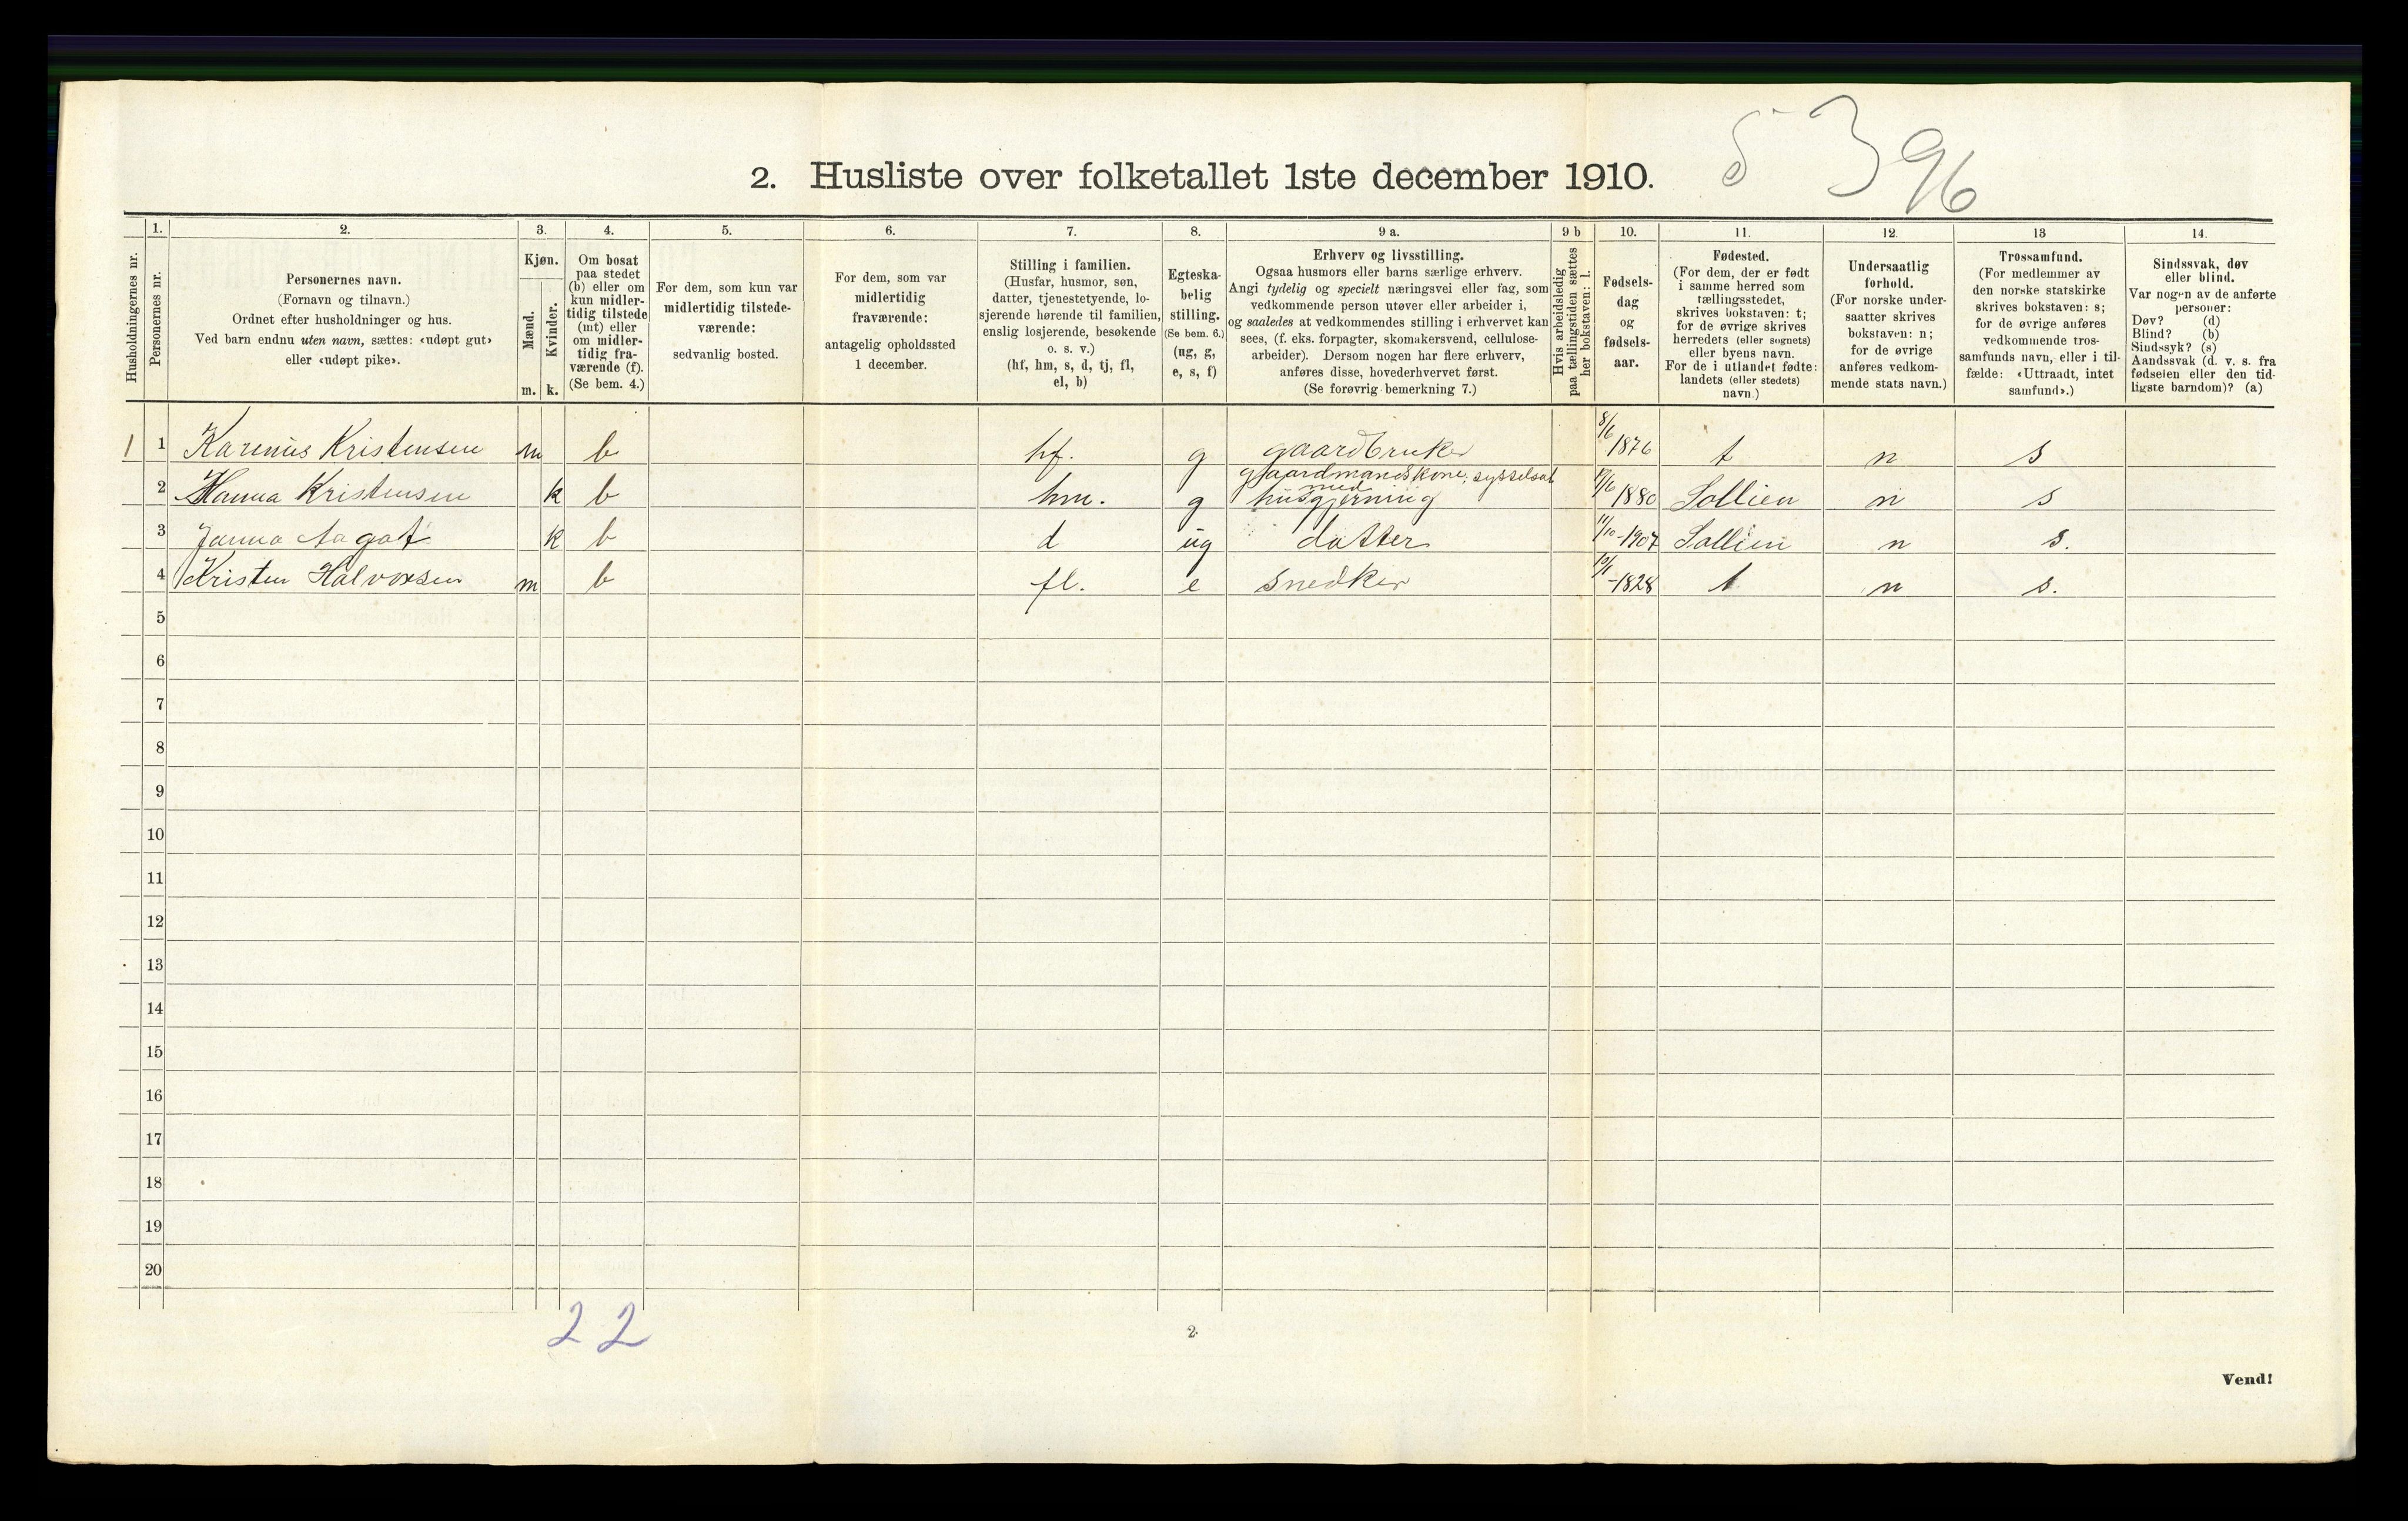 5 396
2. Husliste over folketallet 1ste december 1910.
Husholdningernes nr.
1.
Personernes nr.
2.
Personernes navn.
(Fornavn og tilnavn.)
Ordnet efter husholdninger og hus.
Ved barn endnu uten navn, sættes: «udøpt gut»
eller «udøpt pike».
3.
Kjøn.
Mænd.
Kvinder.
m. k.
4.
Om bosat
paa stedet
(b) eller om
kun midler-
tidig tilstede
(mt) eller
om midler-
tidig fra-
værende (f).
(Se bem. 4.)
5.
For dem, som kun var
midlertidig tilstede-
værende:
sedvanlig bosted.
6.
For dem, som var
midlertidig
fraværende:
antagelig opholdssted
1 december.
7.
Stilling i familien.
(Husfar, husmor, søn,
datter, tjenestetyende, lo-
sjerende hørende til familien,
enslig losjerende, besøkende
o. s. v.)
(hf, hm, s, d, tj, fl,
el, b)
8.
Egteska-
belig
stilling.
(Se bem. 6.)
(ug, g,
e, s, f)
9 a.
Erhverv og livsstilling.
Ogsaa husmors eller barns særlige erhverv.
Angi tydelig og specielt næringsvei eller fag, som
vedkommende person utøver eller arbeider i,
og saaledes at vedkommendes stilling i erhvervet kan
sees, (f. eks. forpagter, skomakersvend, cellulose-
arbeider). Dersom nogen har flere erhverv,
anføres disse, hovederhvervet først.
(Se forøvrig bemerkning 7.)
9 b
Hvis arbeidsledig
paa tællingstiden sættes
her bokstaven: l.
10.
Fødsels-
dag
og
fødsels-
aar.
11.
Fødested.
(For dem, der er født
i samme herred som
tællingsstedet,
skrives bokstaven: t;
for de øvrige skrives
herredets (eller sognets)
eller byens navn.
For de i utlandet fødte:
landets (eller stedets)
navn.)
12.
Undersaatlig
forhold.
(For norske under-
saatter skrives
bokstaven: n;
for de øvrige
anføres vedkom-
mende stats navn.)
13
Trossamfund.
(For medlemmer av
den norske statskirke
skrives bokstaven: s;
for de øvrige anføres
vedkommende tros-
samfunds navn, eller i til-
fælde: «Uttraadt, intet
samfund».)
14.
Sindssvak, døv
eller blind.
Var nogen av de anførte
personer:
Døv? (d)
Blind? (b)
Sindssyk? (s)
Aandssvak (d. v. s. fra
fødselen eller den tid-
ligste barndom)? (a)
1 1 Karinus Kristensen m b hf. g gaardbruker 8/6 1876 t n s
gaardmandskone, sysselsat
med
2 Hanna Kristensen k b hm. g husgjerning /6 1880 Sollien n s
3 Janna Aagot k b d ug datter 11/10-1907 Sollien n s.
4 Kristen Halvorsen m b fl. e snedker -1828 t n s.
5
6
7
8
9
10
11
12
13
14
15
16
17
18
19
20
2 2
2
Vend!